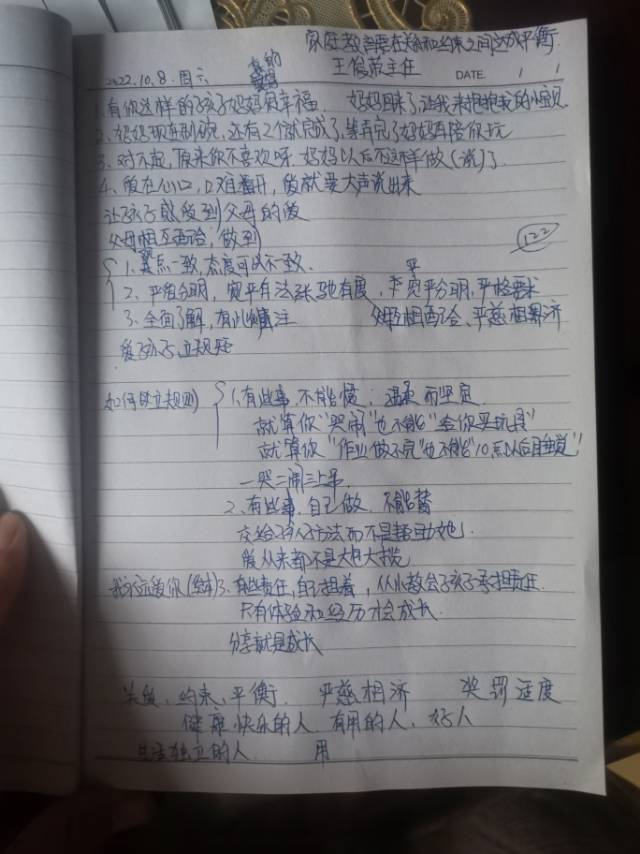 家庭教育要在关爱和约束之间达成平衡
2022.10.8 周六 王俊 主任 DATE / /
1、有你这样的孩子妈妈真幸福 妈妈回来了,让我来抱抱我的小宝贝
2、妈妈现在刷碗,还有2个就完成了,等弄完了妈妈再陪你玩
3、对不起,原来你不喜欢呀,妈妈以后不这样做(说)了
4、爱在心口,口难开,爱就要大声说出来
让孩子感受到父母的爱
父母相互配合,做到
122
1、观点一致,态度可以不一致、
2、严宽分明,宽严有法张弛有度、严宽严分明,严格要求
3、全面了解,有此倾注 父母相配合、严慈相济
爱孩子立规矩
如何树立规则) 1、有些事,不能惯:温柔而坚定
就算你"哭闹"也不能"给你买玩具"
就算你"作业做不完"也不能"10点以后睡觉"
一哭二闹三上吊,
2、有些事,自己做,不能替
交给孩子方法而不是帮助他
爱从来都不是大包大揽
我永远爱你(结束)3、有些责任,自己担着,从小教会孩子承担责任
只有体验和经历才会成长
分享就是成长
关爱、约束、平衡、严慈相济 奖罚适度
健康快乐的人、有用的人、好人
生活独立的人 用